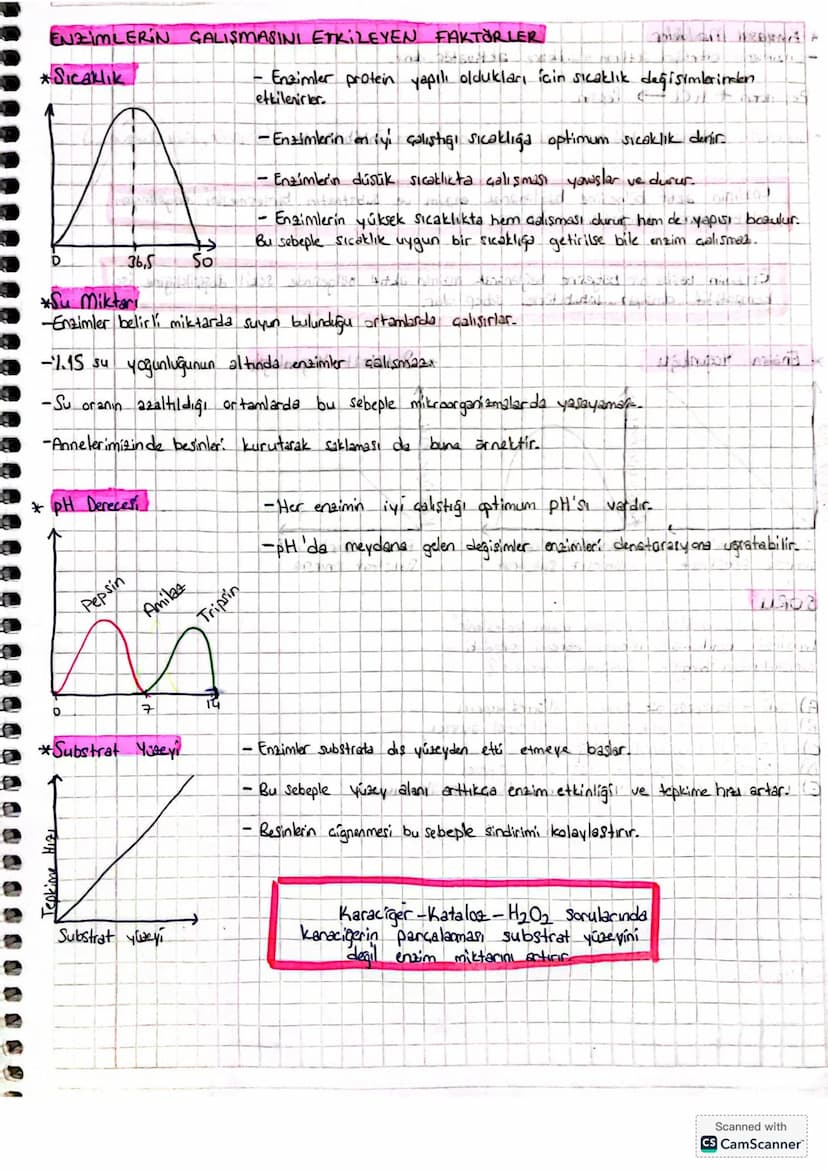 ENZİMLERİN ÇALIŞMASINI ETKİLEYEN FAKTÖRLER
*Sıcaklık
- Enzimler protein yapılı oldukları için sıcaklık değişimlerinden
etkilenirler.
- Enzimlerin en iyi çalıştığı sıcaklığa optimum sıcaklık denir.
- Enzimlerin düşük sıcaklıkta çalışması yavaşlar ve durur.
- Enzimlerin yüksek sıcaklıkta hem çalışması durur hem de yapısı bozulur.
Bu sebeple sıcaklık uygun bir sıcaklığa getirilse bile enzim çalışmaz.
0 36,5 50
*Su Miktarı
-Enzimler belirli miktarda suyun bulunduğu ortamlarda çalışırlar.
-%15 su yoğunluğunun altında enzimler çalışmaz.
-Su oranın azaltıldığı ortamlarda bu sebeple mikroorganizmalar da yaşayamaz.
-Annelerimizinde besinleri kurutarak saklaması da buna örnektir.
* pH Derecesi
-Her enzimin iyi çalıştığı optimum pH'sı vardır.
-pH'da meydana gelen değişimler enzimleri denatürasyona uğratabilir.
Pepsin Amilaz Tripsin
0 7 14
*Substrat Yüzeyi
- Enzimler substrata dış yüzeyden etki etmeye başlar.
- Bu sebeple yüzey alanı arttıkça enzim etkinliği ve tepkime hızı artar.
- Besinlerin çiğnenmesi bu sebeple sindirimi kolaylaştırır.
Tepkime Hızı
Substrat yüzeyi
Karaciğer-Katalaz-H2O2 sorularında
karaciğerin parçalanması substrat yüzeyini
değil enzim miktarını artırır.
Scanned with
CS CamScanner